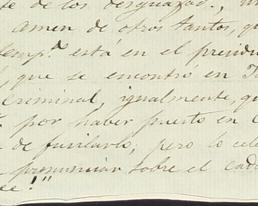 de los desgraciad.,
amen de otros tantos, qu
temp.º está en el presidi
que se encontro en
criminal, igualmente, qu
por haber puesto en
de fusilarlo, pero lo
pronunciar sobre el cadá
ee!"